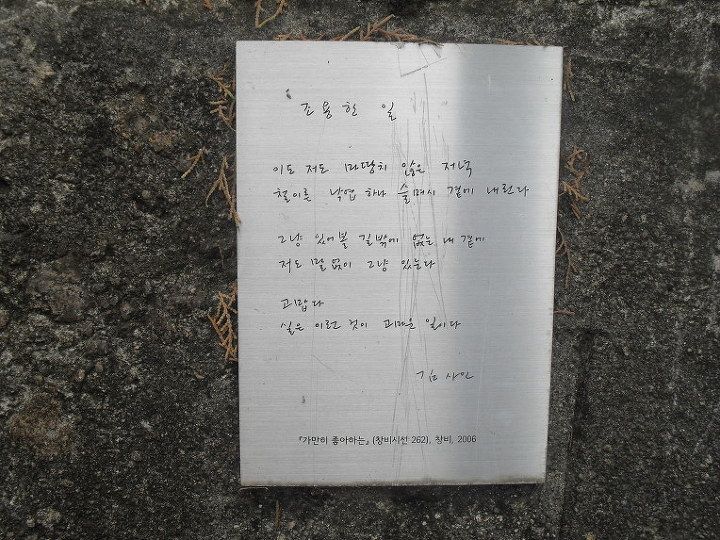 조용한 일
이도 저도 마땅치 않은 저녁
철이른 낙엽 하나 슬며시 곁에 내린다
그냥 있어볼 길밖에 없는 내 곁에
저도 말없이 그냥 있는다
고맙다
실은 이런 것이 고마운 일이다
김사인
『가만히 좋아하는』 (창비시선 262), 창비, 2006